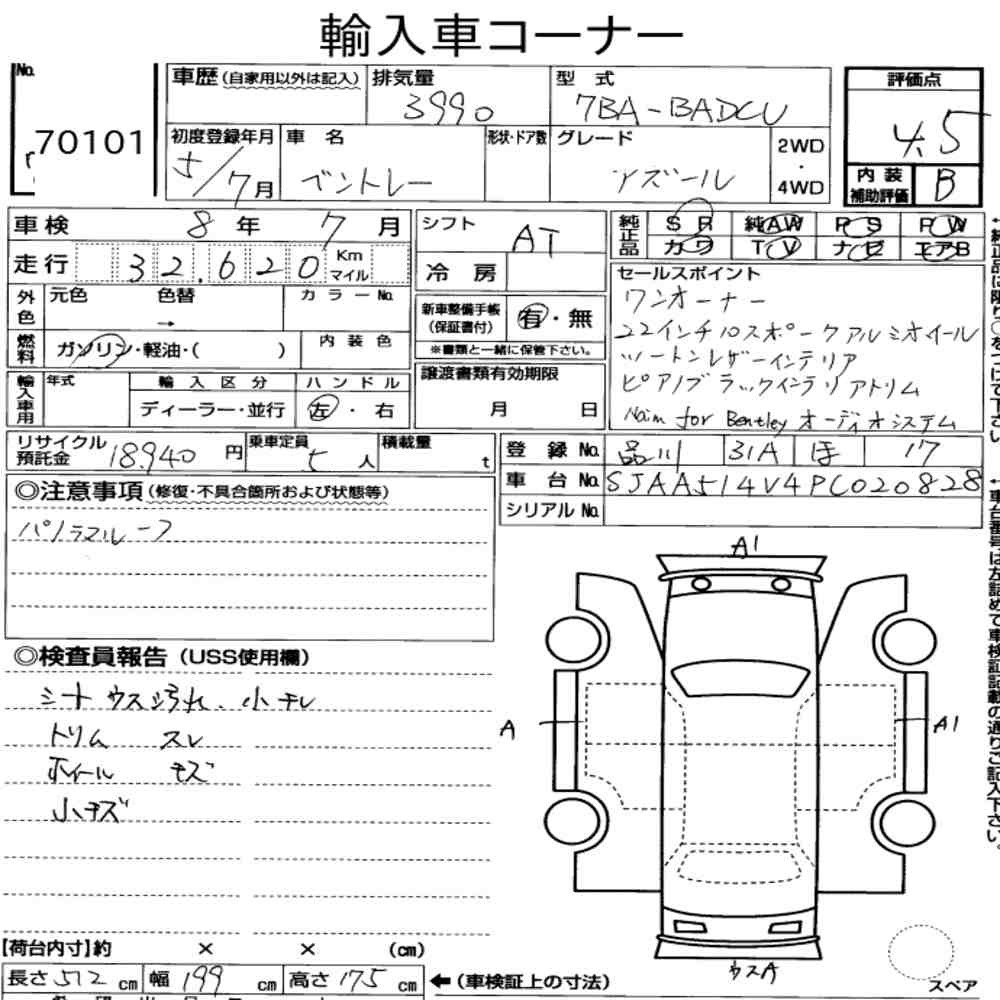 輸入車コーナー
No.
70101
車歴 (自家用以外は記入)
排気量
3990
型式
7BA-BADCU
評価点
4.5
初度登録年月
5/7月
車名
ベントレー
形状・ドア数
グレード
アズール
2WD
・
4WD
内装
補助評価
B
車検 8年 7月
走行 32.620 Km
マイル
シフト
AT
冷房
純正品
SR 純AW PS PW
カワ TV ナビ エアB
外色
元色 色替 カラーNo.
→
燃料
ガソリン・軽油・( )
内装色
新車整備手帳
(保証書付)
有・無
※書類と一緒に保管下さい。
輸入車用
年式
輸入区分
ハンドル
ディーラー・並行
左・右
譲渡書類有効期限
月 日
セールスポイント
ワンオーナー
22インチ10スポークアルミホイール
ツートンレザーインテリア
ピアノブラックインテリアトリム
Naim for Bentley オーディオシステム
リサイクル
預託金
18.940円
乗車定員
5人
積載量
t
登録No. 品川 31A ほ 17
車台No. SJAA514V4PC020828
シリアルNo.
◎注意事項(修復・不具合箇所および状態等)
パノラマルーフ
◎検査員報告(USS使用欄)
シートウス汚れ、小キレ
トリム スレ
ホイール キズ
小キズ
A1
A
A1
ウスA
スペア
【荷台内寸】約 × × (cm)
長さ512cm 幅199cm 高さ175cm ←(車検証上の寸法)
↑純正品に限り○をつけて下さい。
↑車台番号は左詰めて車検証記載の通りご記入下さい。